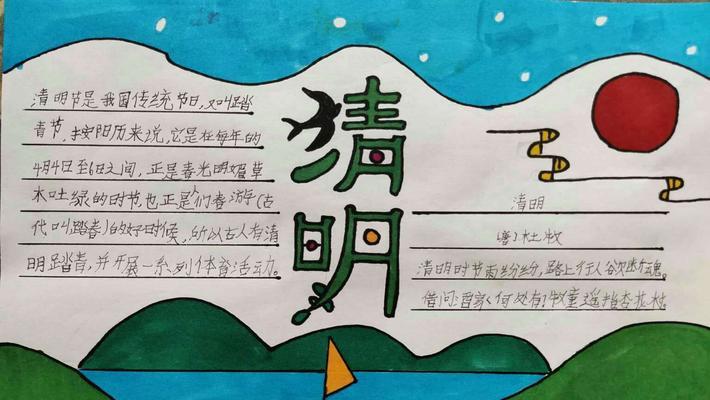 清明节是我国传统节日,又叫踏
青节,按阳历来说,它是在每年的
4月4日至6日之间,正是春光明媚草
木吐绿的时节也正是人们春游(古
代叫踏春)的好时候,所以古人有清
明踏青,并开展一系列体育活动。
清明
清明
唐)杜牧
清明时节雨纷纷,路上行人欲断魂。
借问酒家何处有!牧童遥指杏花村